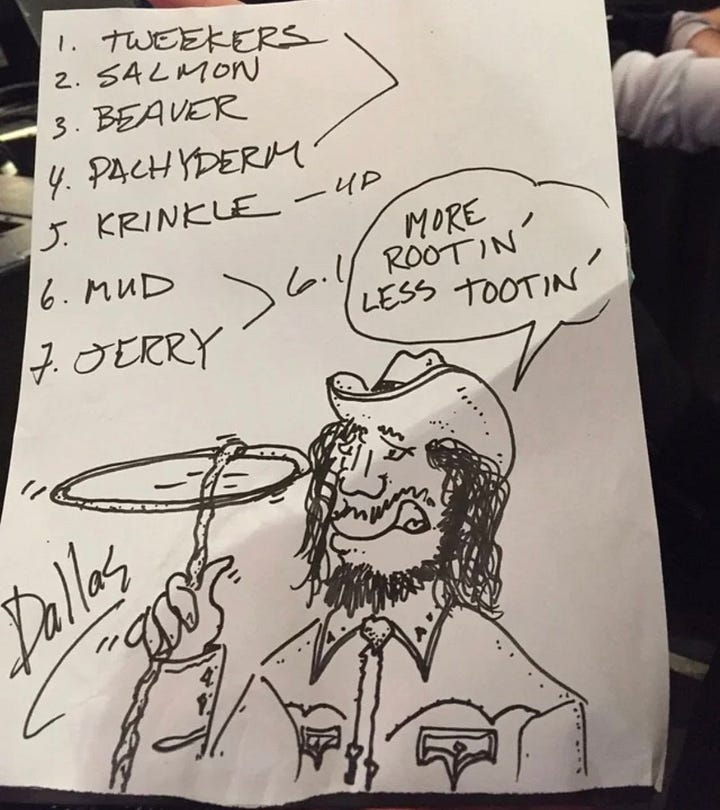 1. TWEEKERS
2. SALMON
3. BEAVER
4. PACHYDERM
5. KRINKLE - UP
6. MUD
6.1
7. JERRY
MORE
ROOTIN'
LESS TOOTIN'
Dallas